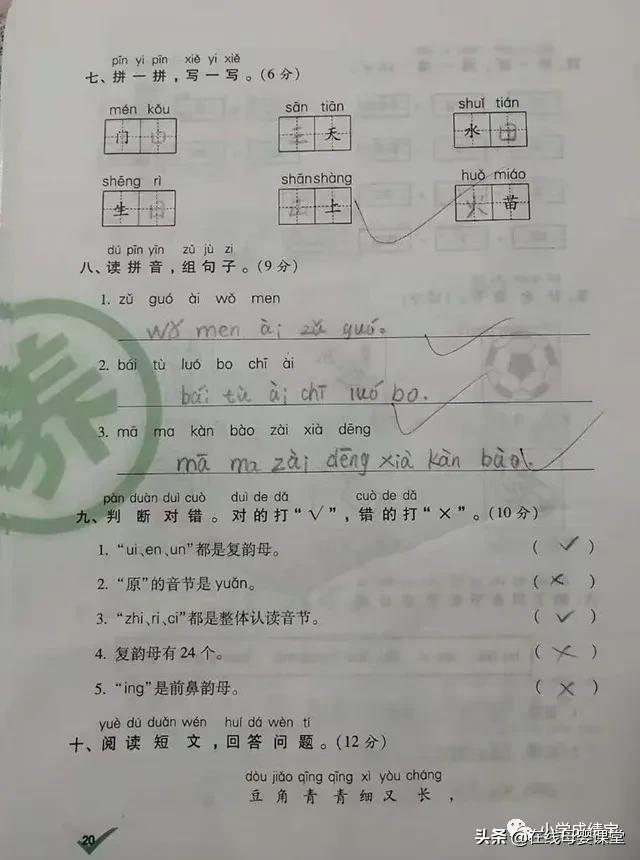 pīn yi pīn xiě yi xiě
七、拼一拼，写一写。(6分)
mén kǒu sān tiān shuǐ tián
门 口 三 天 水 田
shēng rì shān shàng huǒ miáo
生 日 山 上 火 苗
dú pīn yīn zǔ jù zi
八、读拼音，组句子。(9分)
1. zǔ guó ài wǒ men
wǒ men ài zǔ guó。
2. bái tù luó bo chī ài
bái tù ài chī luó bo.
3. mā ma kàn bào zài xià dēng
mā ma zài dēng xià kàn bào.
pàn duàn duì cuò duì de dǎ cuò de dǎ
九、判断对错。对的打“√”，错的打“×”。(10分)
1. “ui、en、un”都是复韵母。 ( ✓ )
2. “原”的音节是 yuǎn。 ( × )
3. “zhi、ri、ci”都是整体认读音节。 ( ✓ )
4. 复韵母有 24 个。 ( × )
5. “ing”是前鼻韵母。 ( × )
yuè dú duǎn wén huí dá wèn tí
十、阅读短文，回答问题。(12分)
dòu jiǎo qīng qīng xì yòu cháng
豆角青青细又长，
20
养
头条 @在线母婴课堂
小学成绩宝